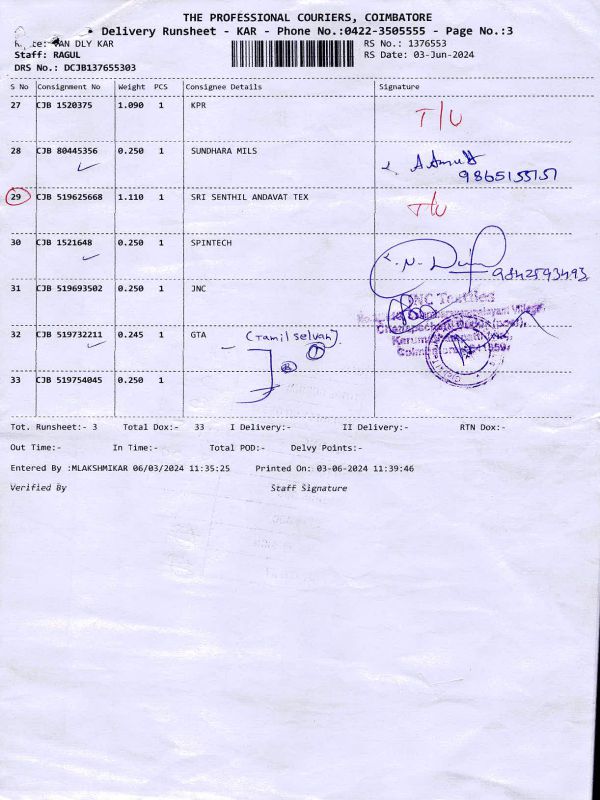 THE PROFESSIONAL COURIERS, COIMBATORE
Delivery Runsheet - KAR - Phone No.:0422-3505555 - Page No.:3
VAN DLY KAR RS No.: 1376553
Staff: RAGUL RS Date: 03-Jun-2024
DRS No.: DCJB137655303
S No Consignment No Weight PCS Consignee Details Signature
27 CJB 1520375 1.090 1 KPR T/U
28 CJB 80445356 0.250 1 SUNDHARA MILS
29 CJB 519625668 1.110 1 SRI SENTHIL ANDAVAT TEX T/U
30 CJB 1521648 0.250 1 SPINTECH
9842593493
31 CJB 519693502 0.250 1 JNC
JNC Textiles
32 CJB 519732211 0.245 1 GTA (Tamil selvan)
33 CJB 519754045 0.250 1
Tot. Runsheet:- 3 Total Dox:- 33 I Delivery:- II Delivery:- RTN Dox:-
Out Time:- In Time:- Total POD:- Delvy Points:-
Entered By :MLAKSHMIKAR 06/03/2024 11:35:25 Printed On: 03-06-2024 11:39:46
Verified By Staff Signature